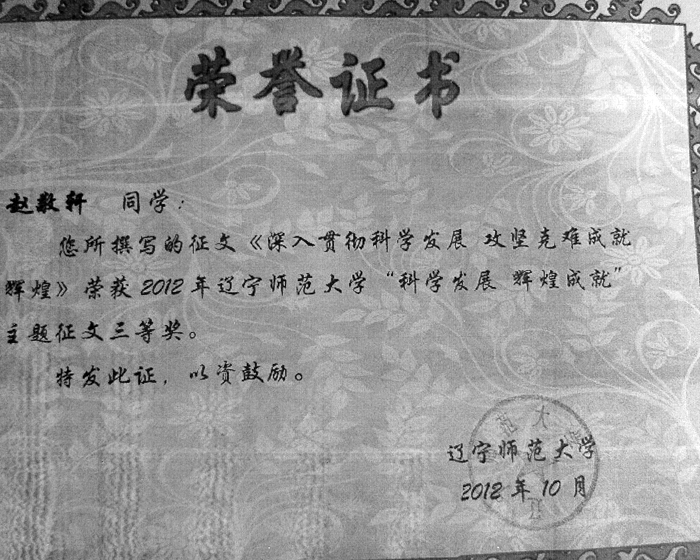 荣誉证书
赵敬轩 同学：
您所撰写的征文《深入贯彻科学发展 攻坚克难成就
辉煌》荣获2012年辽宁师范大学“科学发展 辉煌成就”
主题征文三等奖。
特发此证，以资鼓励。
辽宁师范大学
2012年10月